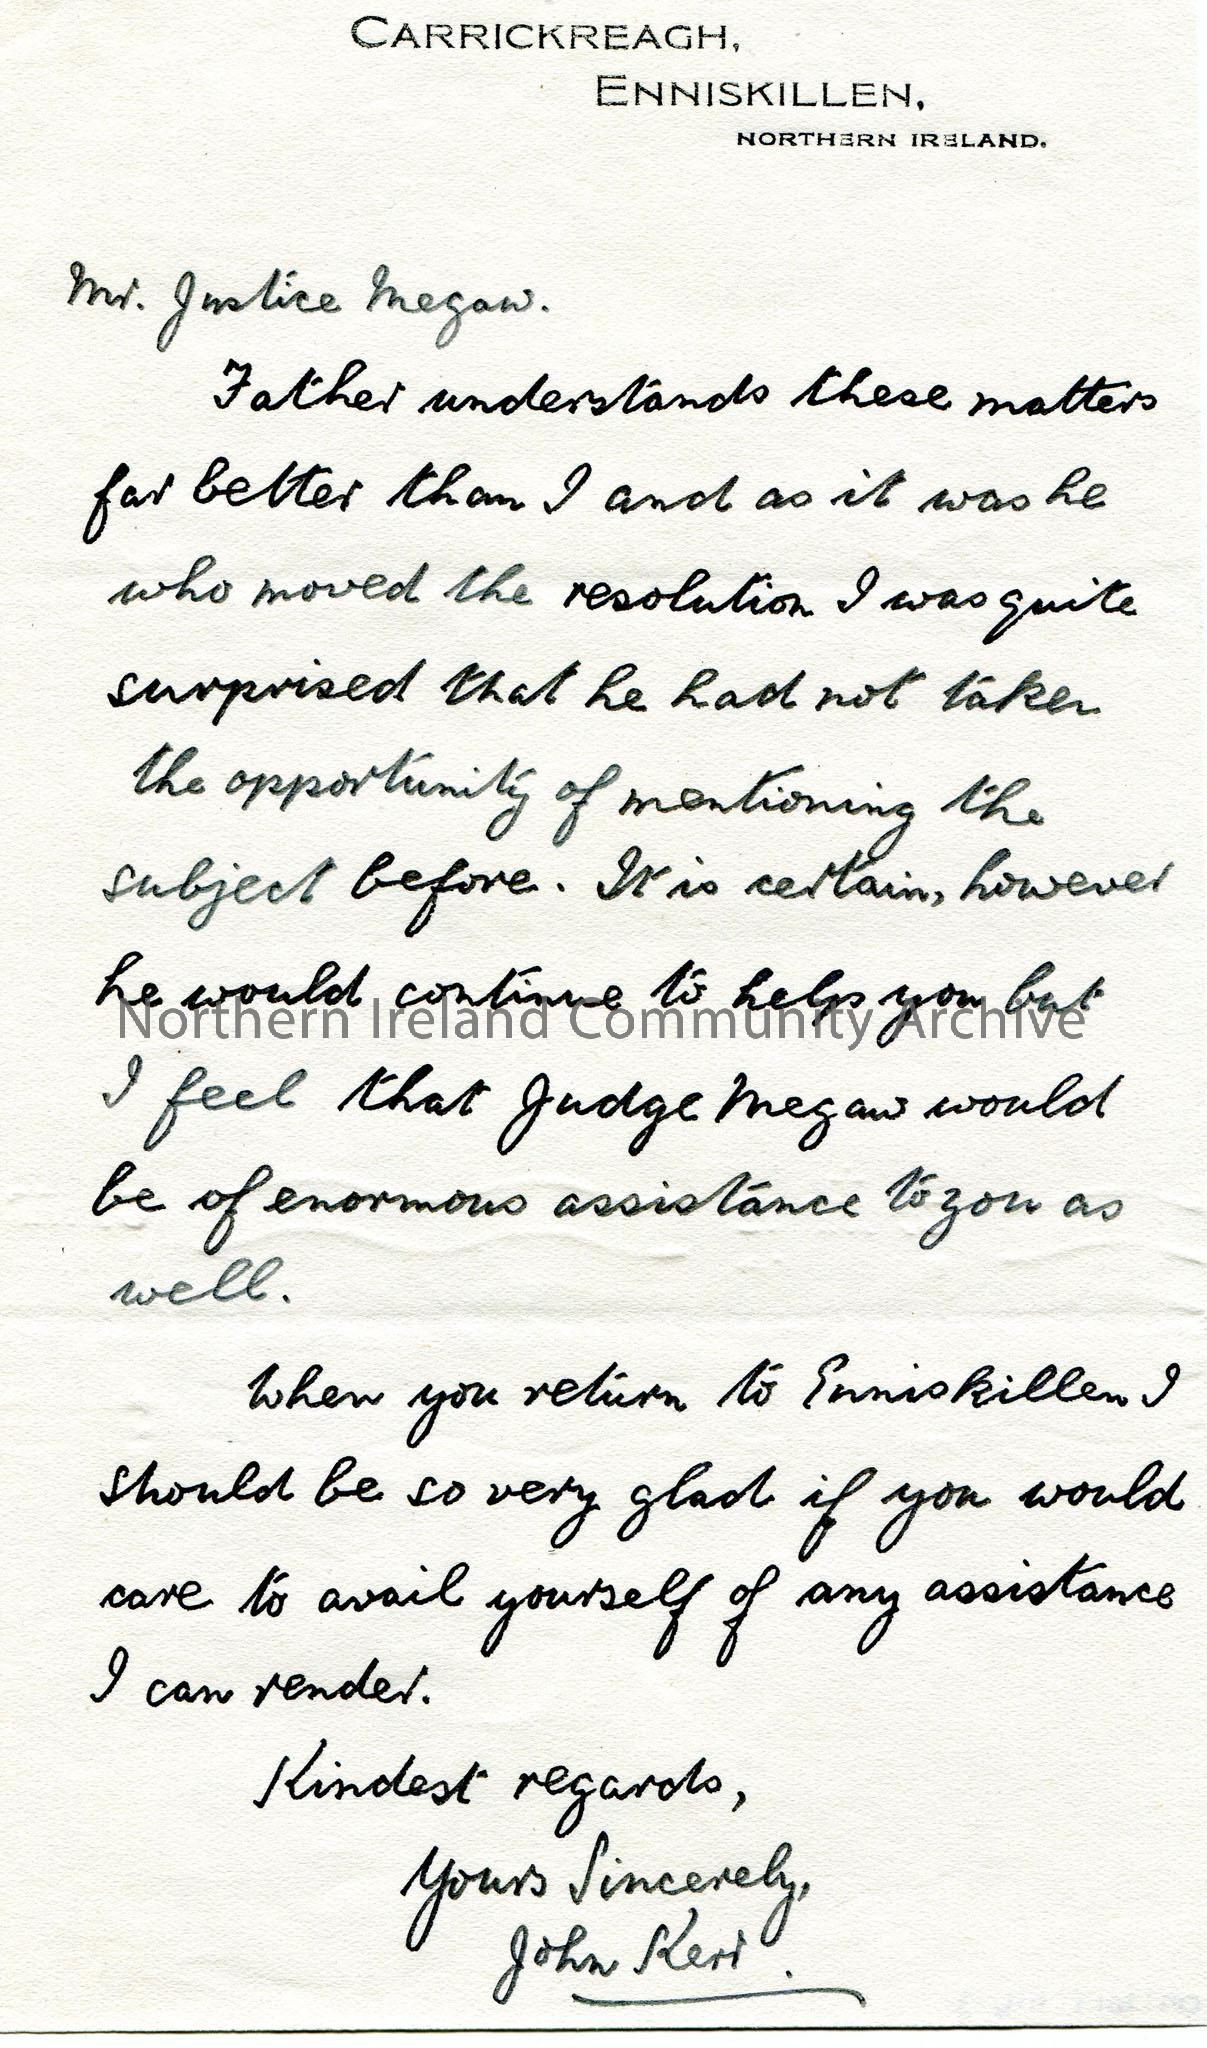 CARRICKREAGH,
ENNISKILLEN,
NORTHERN IRELAND.
Mr. Justice Megaw.
Father understands these matters
far better than I and as it was he
who moved the resolution I was quite
surprised that he had not taken
the opportunity of mentioning the
subject before. It is certain, however
he would continue to help you but
Northern Ireland Community Archive
I feel that Judge Megaw would
be of enormous assistance to you as
well.
When you return to Enniskillen I
should be so very glad if you would
care to avail yourself of any assistance
I can render.
Kindest regards,
Yours Sincerely,
John Kerr.